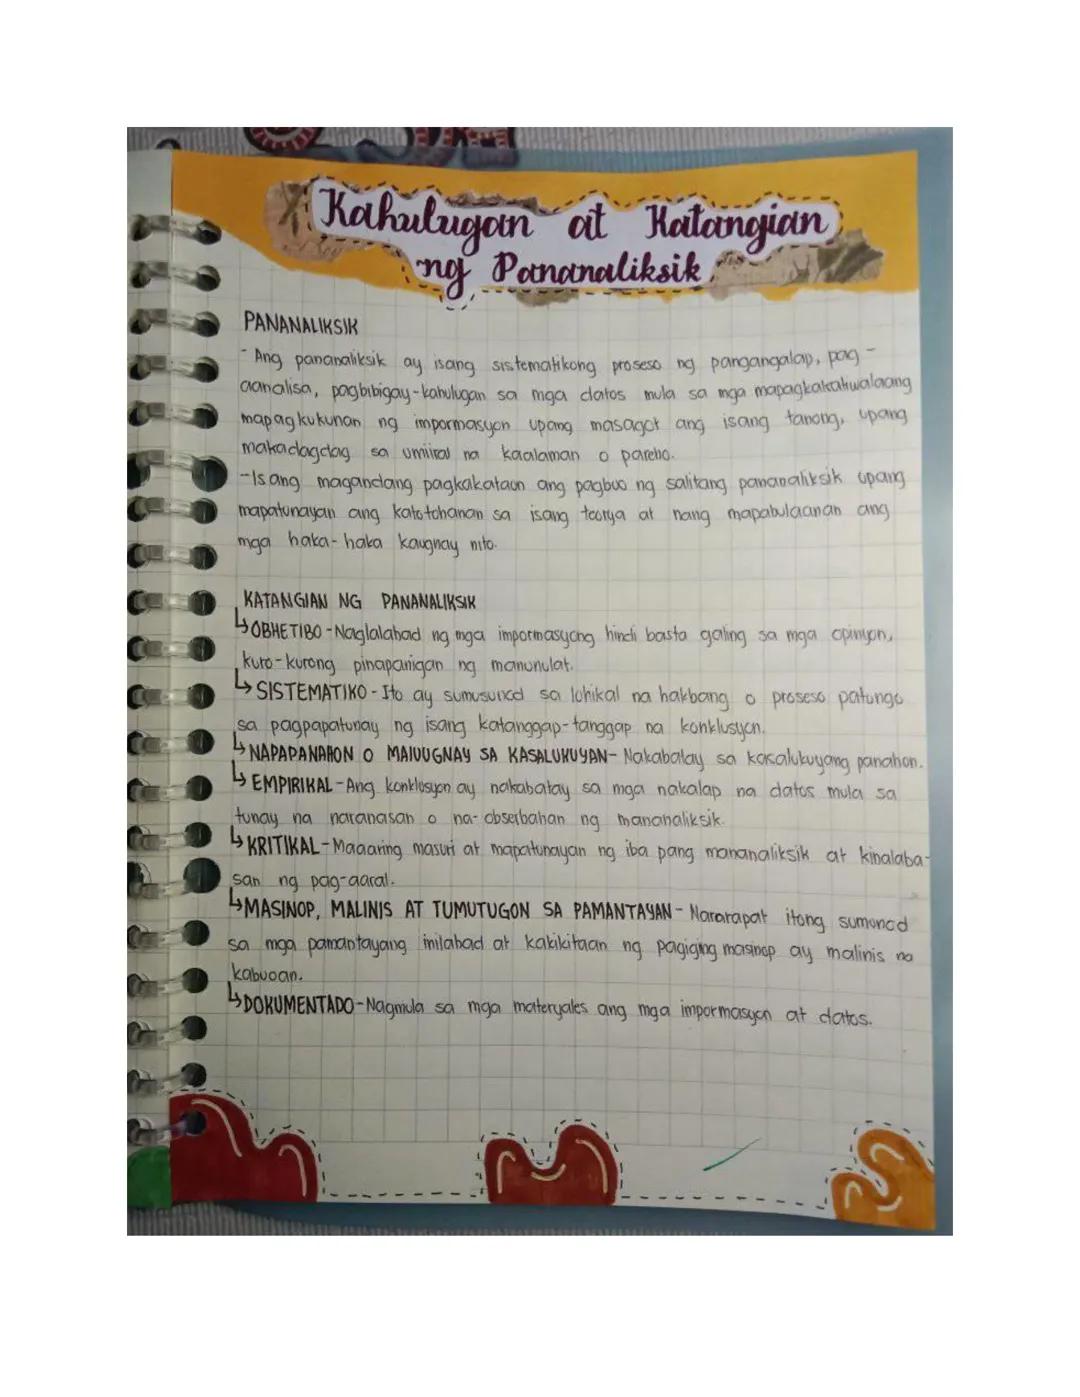 Kahulugan at Katangian
ng Pananaliksik
PANANALIKSIK
- Ang pananaliksik ay isang sistematikong proseso ng pangangalap, pag-
aanalisa, pagbibigay-kahulugan sa mga datos mula sa mga mapagkakatiwalaang
mapagkukunan ng impormasyon upang masagot ang isang tanong, upang
makadagdag sa umiiral na kaalaman o pareho.
-Isang magandang pagkakataon ang pagbuo ng salitang pananaliksik upang
mapatunayan ang katotohanan sa isang teorya at nang mapabulaanan ang
mga haka-haka kaugnay nito.
KATANGIAN NG PANANALIKSIK
↳OBHETIBO-Naglalahad ng mga impormasyong hindi basta galing sa mga opinyon,
kuro-kurong pinapanigan ng manunulat.
↳SISTEMATIKO-Ito ay sumusunod sa lohikal na hakbang o proseso patungo
sa pagpapatunay ng isang katanggap-tanggap na konklusyon.
↳NAPAPANAHON O MAIUUGNAY SA KASALUKUYAN-Nakabatay sa kasalukuyang panahon.
↳EMPIRIKAL-Ang konklusyon ay nakabatay sa mga nakalap na datos mula sa
tunay na naranasan o na-obserbahan ng mananaliksik.
↳KRITIKAL-Maaaring masuri at mapatunayan ng iba pang mananaliksik at kinalaba-
san ng pag-aaral.
↳MASINOP, MALINIS AT TUMUTUGON SA PAMANTAYAN-Nararapat itong sumunod
sa mga pamantayang inilahad at kakikitaan ng pagiging masinop ay malinis na
kabuoan.
↳DOKUMENTADO-Nagmula sa mga materyales ang mga impormasyon at datos.